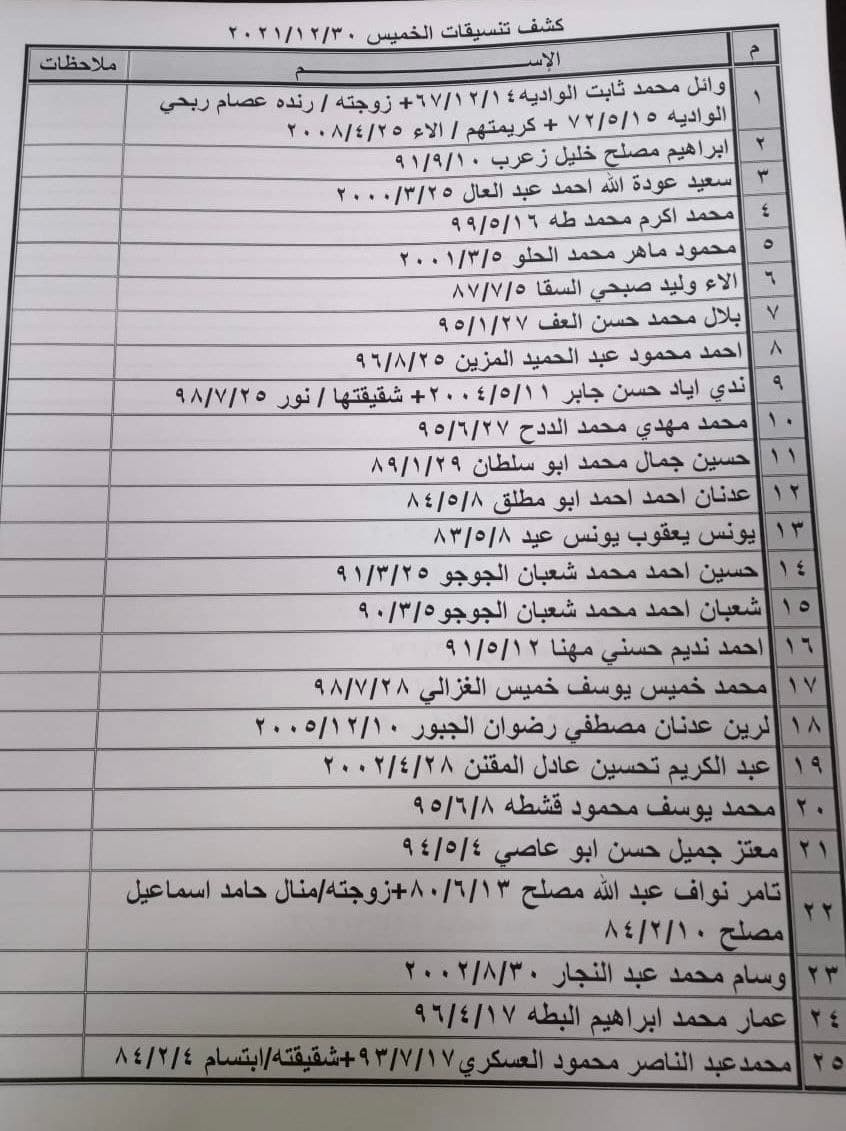 كشف تنسيقات الخميس ٢٠٢١/١٢/٣٠
م الإســـــــــــــم ملاحظات
١ وائل محمد ثابت الواديه ٦٧/١٢/١٤+ زوجته / رنده عصام ربحي
الواديه ٧٢/٥/١٥ + كريمتهم / الاء ٢٠٠٨/٤/٢٥
٢ ابراهيم مصلح خليل زعرب ٩١/٩/١٠
٣ سعيد عودة الله احمد عبد العال ٢٠٠٠/٣/٢٥
٤ محمد اكرم محمد طه ٩٩/٥/١٦
٥ محمود ماهر محمد الحلو ٢٠٠١/٣/٥
٦ الاء وليد صبحي السقا ٨٧/٧/٥
٧ بلال محمد حسن العف ٩٥/١/٢٧
٨ احمد محمود عبد الحميد المزين ٩٦/٨/٢٥
٩ ندي اياد حسن جابر ٢٠٠٤/٥/١١+ شقيقتها / نور ٩٨/٧/٢٥
١٠ محمد مهدي محمد الددح ٩٥/٦/٢٧
١١ حسين جمال محمد ابو سلطان ٨٩/١/٢٩
١٢ عدنان احمد احمد ابو مطلق ٨٤/٥/٨
١٣ يونس يعقوب يونس عيد ٨٣/٥/٨
١٤ حسين احمد محمد شعبان الجوجو ٩١/٣/٢٥
١٥ شعبان احمد محمد شعبان الجوجو ٩٠/٣/٥
١٦ احمد نديم حسني مهنا ٩١/٥/١٢
١٧ محمد خميس يوسف خميس الغزالي ٩٨/٧/٢٨
١٨ لرين عدنان مصطفي رضوان الجبور ٢٠٠٥/١٢/١٠
١٩ عبد الكريم تحسين عادل المقنن ٢٠٠٢/٤/٢٨
٢٠ محمد يوسف محمود قشطه ٩٥/٦/٨
٢١ معتز جميل حسن ابو عاصي ٩٤/٥/٤
٢٢ تامر نواف عبد الله مصلح ٨٠/٦/١٣+زوجته/منال حامد اسماعيل
مصلح ٨٤/٢/١٠
٢٣ وسام محمد عبد النجار ٢٠٠٢/٨/٣٠
٢٤ عمار محمد ابراهيم البطه ٩٦/٤/١٧
٢٥ محمدعبد الناصر محمود العسكري ٩٣/٧/١٧+شقيقته/ابتسام ٨٤/٢/٤